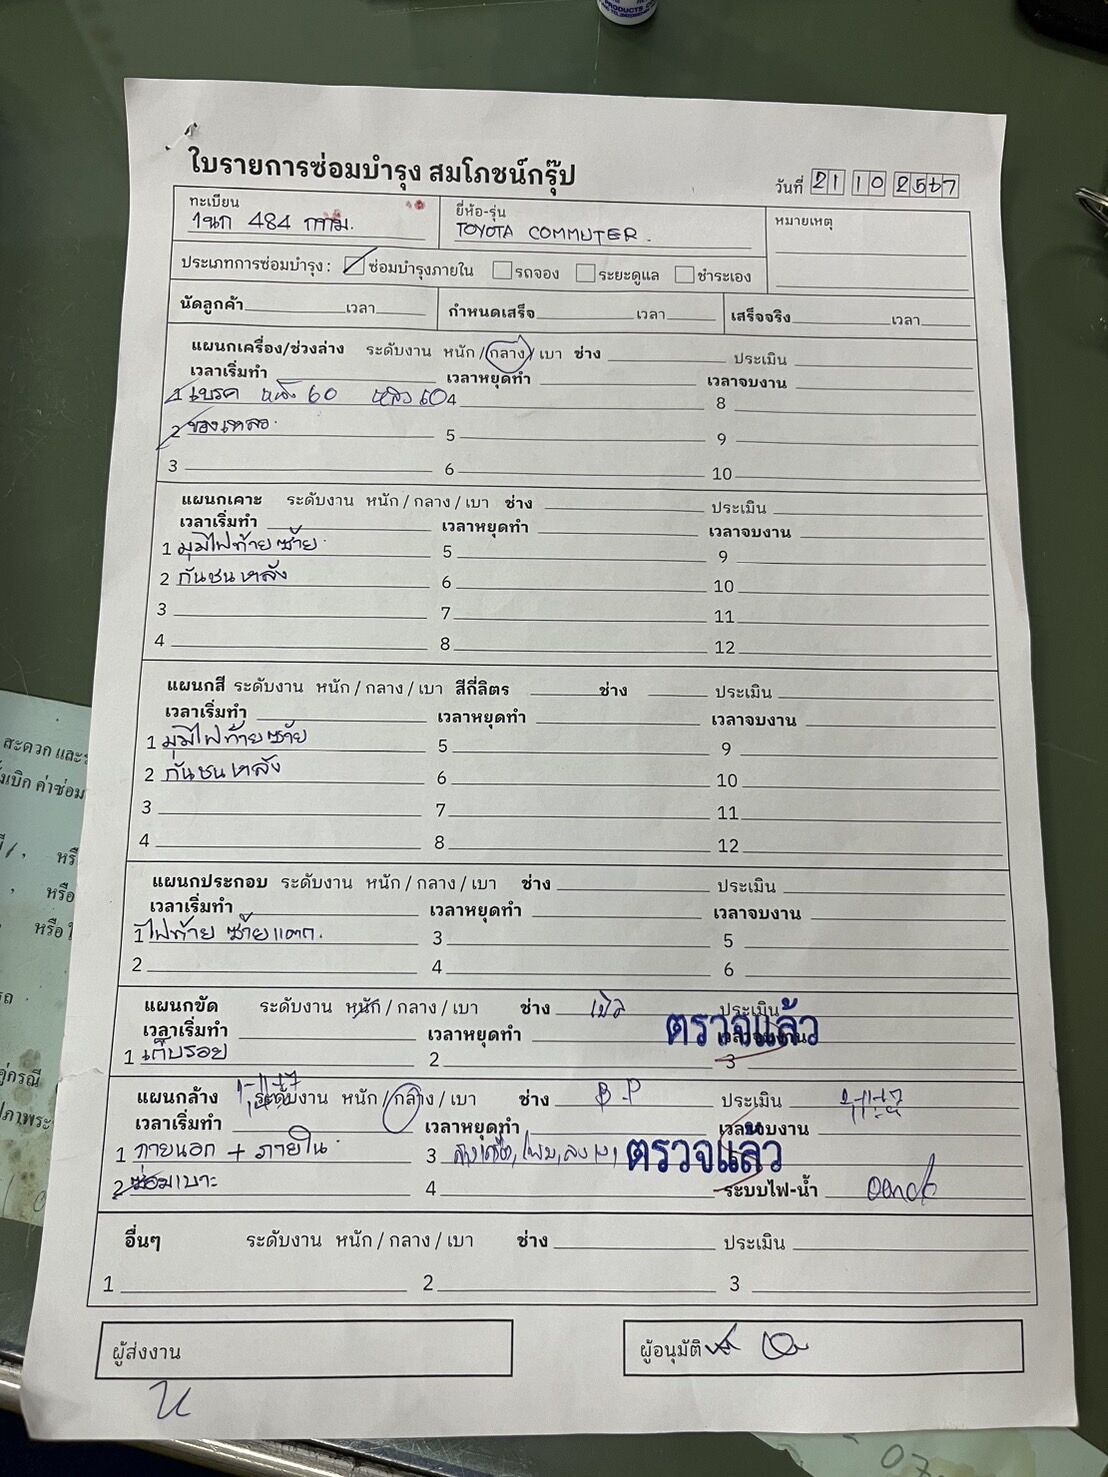 PRODUCTS
ใบรายการซ่อมบำรุง สมโภชน์กรุ๊ป
วันที่ 21 10 2567
ทะเบียน
1นก 484 กทม.
ยี่ห้อ-รุ่น
TOYOTA COMMUTER.
หมายเหตุ
ประเภทการซ่อมบำรุง : ซ่อมบำรุงภายใน รถจอง ระยะดูแล ชำระเอง
นัดลูกค้า เวลา กำหนดเสร็จ เวลา เสร็จจริง เวลา
แผนกเครื่อง/ช่วงล่าง ระดับงาน หนัก / กลาง / เบา ช่าง ประเมิน
เวลาเริ่มทำ เวลาหยุดทำ เวลาจบงาน
1 เบรค หน้า 60 หลัง 60 4 8
2 ของเหลว. 5 9
3 6 10
แผนกเคาะ ระดับงาน หนัก / กลาง / เบา ช่าง ประเมิน
เวลาเริ่มทำ เวลาหยุดทำ เวลาจบงาน
1 มุมไฟท้ายซ้าย. 5 9
2 กันชนหลัง 6 10
3 7 11
4 8 12
แผนกสี ระดับงาน หนัก / กลาง / เบา สีกี่ลิตร ช่าง ประเมิน
เวลาเริ่มทำ เวลาหยุดทำ เวลาจบงาน
1 มุมไฟท้ายซ้าย 5 9
2 กันชนหลัง 6 10
3 7 11
4 8 12
แผนกประกอบ ระดับงาน หนัก / กลาง / เบา ช่าง ประเมิน
เวลาเริ่มทำ เวลาหยุดทำ เวลาจบงาน
1 ไฟท้าย ซ้ายแตก. 3 5
2 4 6
แผนกขัด ระดับงาน หนัก / กลาง / เบา ช่าง ประเมิน
ตรวจแล้ว
เวลาเริ่มทำ เวลาหยุดทำ เวลาจบงาน
1 เก็บรอย 2 3
แผนกล้าง ระดับงาน หนัก / กลาง / เบา ช่าง B.P ประเมิน
เวลาเริ่มทำ เวลาหยุดทำ เวลาจบงาน
1 ภายนอก + ภายใน. 3
ตรวจแล้ว
2 ซ่อมเบาะ 4 ระบบไฟ-น้ำ
อื่นๆ ระดับงาน หนัก / กลาง / เบา ช่าง ประเมิน
1 2 3
ผู้ส่งงาน ผู้อนุมัติ
สะดวก และ
เบิก ค่าซ่อม
หรือ
หรือ
คู่กรณี
07